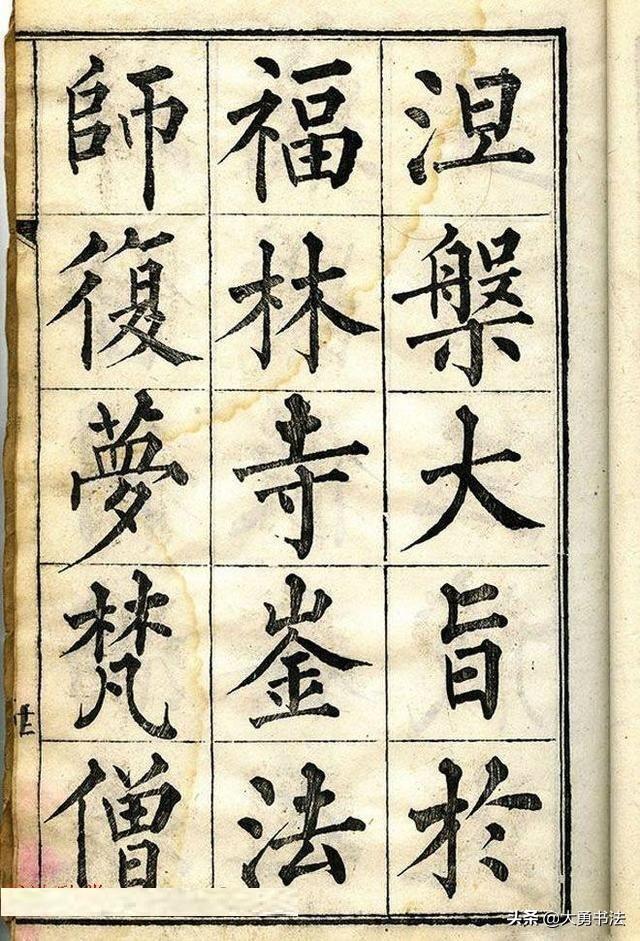 涅槃大旨於
福林寺崟法
師復夢梵僧
廿
头条 @大勇书法